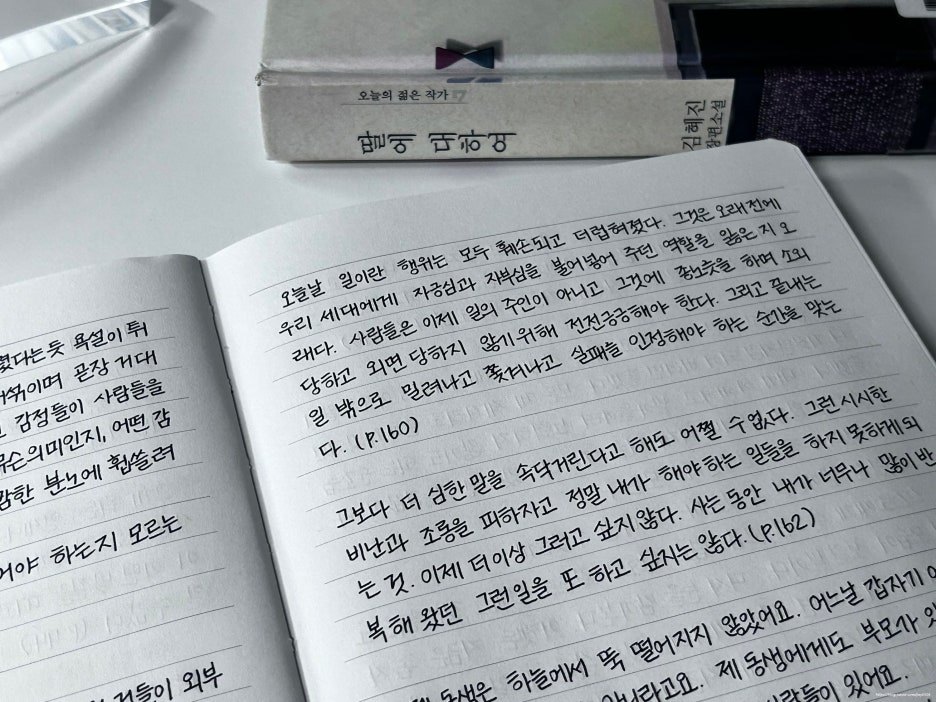 오늘의 젊은 작가 17
딸에 대하여
김혜진
장편소설
오늘날 일이란 행위는 모두 훼손되고 더럽혀졌다. 그것은 오래 전에
우리 세대에게 자긍심과 자부심을 불어넣어 주던 역할을 잃은 지 오
래다. 사람들은 이제 일의 주인이 아니고 그것에 종노릇을 하며 소외
당하고 외면 당하지 않기 위해 전전긍긍해야 한다. 그리고 끝내는
일 밖으로 밀려나고 쫓겨나고 실패를 인정해야 하는 순간을 맞는
다. (p.160)
그보다 더 심한 말을 속닥거린다고 해도 어쩔 수 없다. 그런 시시한
비난과 조롱을 피하자고 정말 내가 해야 하는 일들을 하지 못하게 되
는 것. 이제 더 이상 그러고 싶지 않다. 사는 동안 내가 너무나 많이 반
복해 왔던 그런 일을 또 하고 싶지는 않다. (p.162)
동생은 하늘에서 뚝 떨어지지 않았어요. 어느날 갑자기
아니라고요. 제 동생에게도 부모가 있
사람들이 있어요.
다는 듯 욕설이 튀
뒤섞이며 곧장 거대
감정들이 사람들을
무슨 의미인지, 어떤 감
분노에 휩쓸려
하는지 모르는
것들이 외부